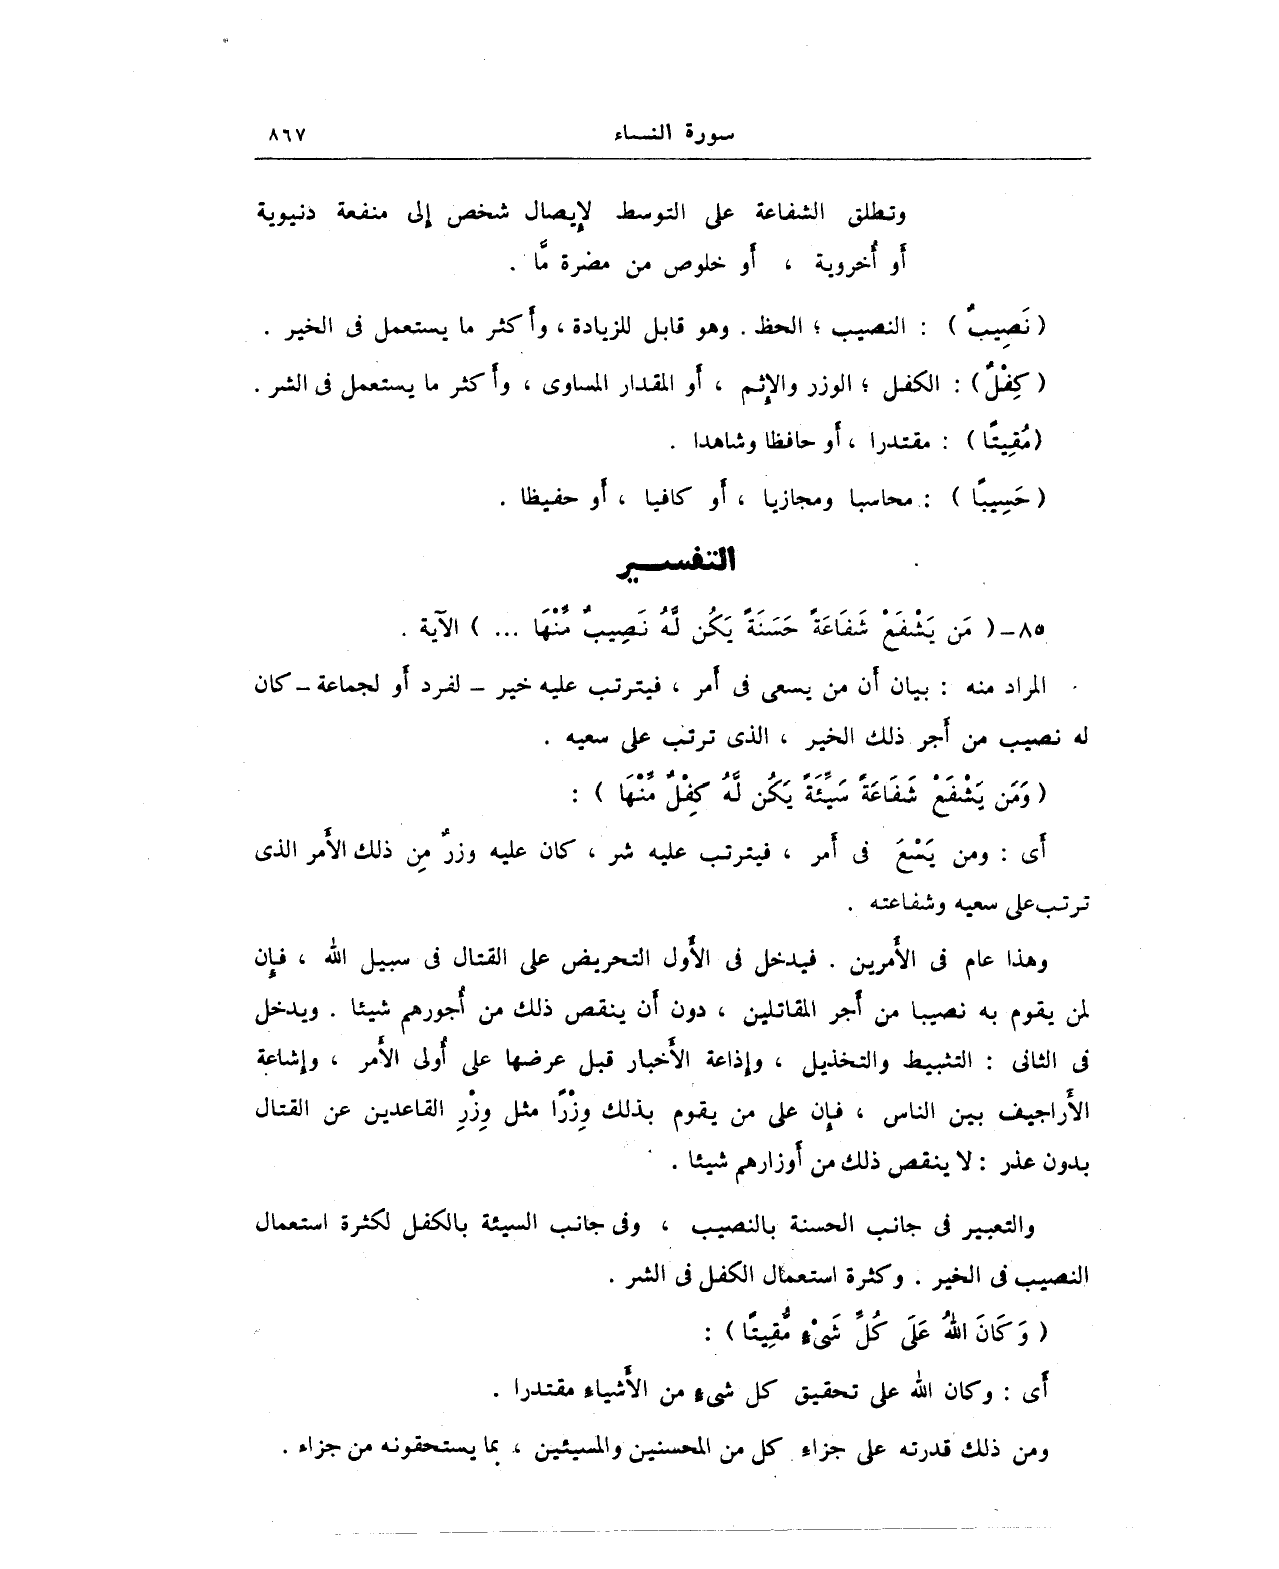 سورة النساء ٨٦٧
وتطلق الشفاعة على التوسط لإيصال شخص إلى منفعة دنيوية
أو أُخروية ، أو خلوص من مضرة مَّا .
( نَصِيبٌ ) : النصيب ؛ الحظ . وهو قابل للزيادة ، وأكثر ما يستعمل فى الخير .
( كِفْلٌ ) : الكفل ؛ الوزر والإثم ، أو المقدار المساوى ، وأكثر ما يستعمل فى الشر .
(مُقِيتًا ) : مقتدرا ، أو حافظا وشاهدا .
( حَسِيبًا ) : محاسبا ومجازيا ، أو كافيا ، أو حفيظا .
التفسير
٨٥ – ( مَن يَشْفَعْ شَفَاعَةً حَسَنَةً يَكُن لَّهُ نَصِيبٌ مِّنْهَا ... ) الآية .
المراد منه : بيان أن من يسعى فى أمر ، فيترتب عليه خير – لفرد أو لجماعة – كان
له نصيب من أجر ذلك الخير ، الذى ترتب على سعيه .
( وَمَن يَشْفَعْ شَفَاعَةً سَيِّئَةً يَكُن لَّهُ كِفْلٌ مِّنْهَا ) :
أى : ومن يَسْعَ فى أمر ، فيترتب عليه شر ، كان عليه وزرٌ مِن ذلك الأمر الذى
ترتب على سعيه وشفاعته .
وهذا عام فى الأمرين . فيدخل فى الأول التحريض على القتال فى سبيل الله ، فإن
لمن يقوم به نصيبا من أجر المقاتلين ، دون أن ينقص ذلك من أُجورهم شيئا . ويدخل
فى الثانى : التثبيط والتخذيل ، وإذاعة الأخبار قبل عرضها على أُولى الأمر ، وإشاعة
الأراجيف بين الناس ، فإن على من يقوم بذلك وِزْرًا مثل وِزْرِ القاعدين عن القتال
بدون عذر : لا ينقص ذلك من أوزارهم شيئا .
والتعبير فى جانب الحسنة بالنصيب ، وفى جانب السيئة بالكفل لكثرة استعمال
النصيب فى الخير . وكثرة استعمال الكفل فى الشر .
( وَكَانَ اللهُ عَلَى كُلِّ شَىْءٍ مُّقِيتًا ) :
أى : وكان الله على تحقيق كل شىء من الأشياء مقتدرا .
ومن ذلك قدرته على جزاء كل من المحسنين والمسيئين ، بما يستحقونه من جزاء .